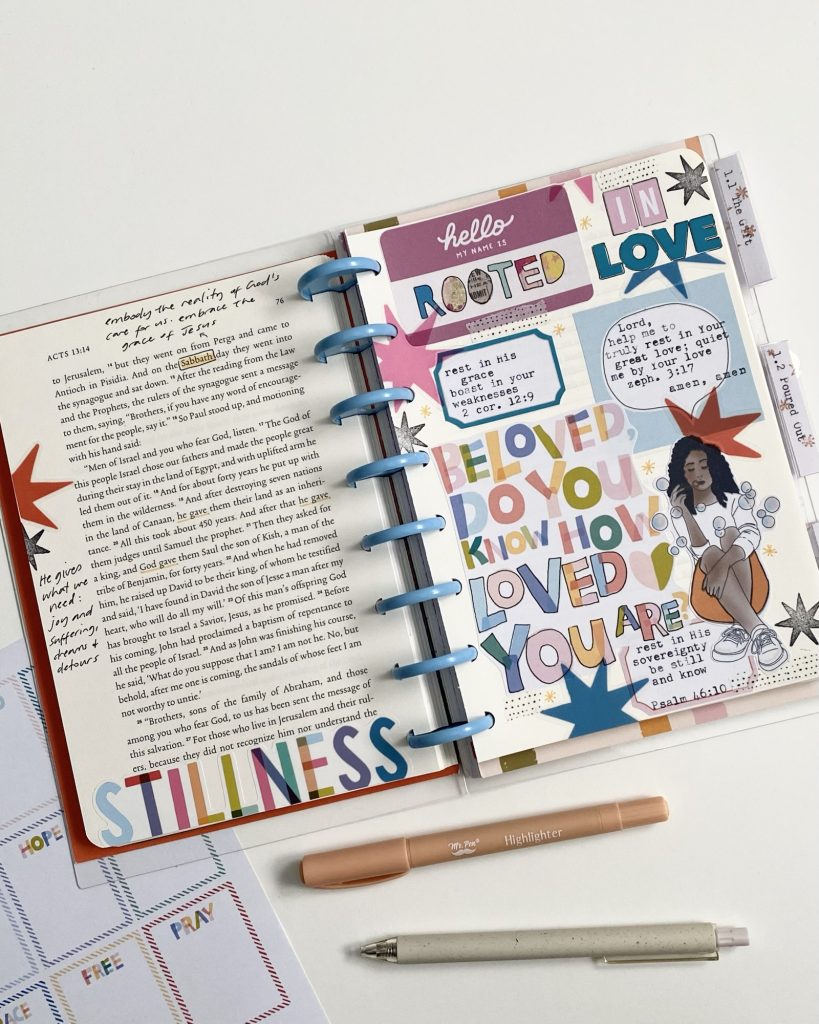 embody the reality of God's
care for us. embrace the
grace of Jesus
76
ACTS 13:14
to Jerusalem, 14 but they went on from Perga and came to
Antioch in Pisidia. And on the Sabbath day they went into
the synagogue and sat down. 15 After the reading from the Law
and the Prophets, the rulers of the synagogue sent a message
to them, saying, "Brothers, if you have any word of encourage-
ment for the people, say it." 16 So Paul stood up, and motioning
with his hand said:
"Men of Israel and you who fear God, listen. 17 The God of
this people Israel chose our fathers and made the people great
during their stay in the land of Egypt, and with uplifted arm he
led them out of it. 18 And for about forty years he put up with
them in the wilderness. 19 And after destroying seven nations
in the land of Canaan, he gave them their land as an inheri-
tance. 20 All this took about 450 years. And after that he gave
them judges until Samuel the prophet. 21 Then they asked for
a king, and God gave them Saul the son of Kish, a man of the
tribe of Benjamin, for forty years. 22 And when he had removed
him, he raised up David to be their king, of whom he testified
and said, 'I have found in David the son of Jesse a man after my
heart, who will do all my will.' 23 Of this man's offspring God
has brought to Israel a Savior, Jesus, as he promised. 24 Before
his coming, John had proclaimed a baptism of repentance to
all the people of Israel. 25 And as John was finishing his course,
he said, 'What do you suppose that I am? I am not he. No, but
behold, after me one is coming, the sandals of whose feet I am
not worthy to untie.'
26 "Brothers, sons of the family of Abraham, and those
among you who fear God, to us has been sent the message of
this salvation. 27 For those who live in Jerusalem and their rul-
ers, because they did not recognize him nor understand the
He gives
what we
need:
joy and
suffering,
dreams +
detours
STILLNESS
hello
MY NAME IS
ROOTED
IN
LOVE
rest in His
grace
boast in your
weaknesses
2 cor. 12:9
Lord,
help me to
truly rest in Your
great love; quiet
me by Your love
zeph. 3:17
amen, amen
BELOVED,
DO YOU
KNOW HOW
LOVED
YOU ARE?
rest in His
sovereignty
be still
and know
Psalm 46:10
1.1 The Gift
1.2 Poured Out
Mr. Pen
Highlighter
HOPE
PRAY
FREE